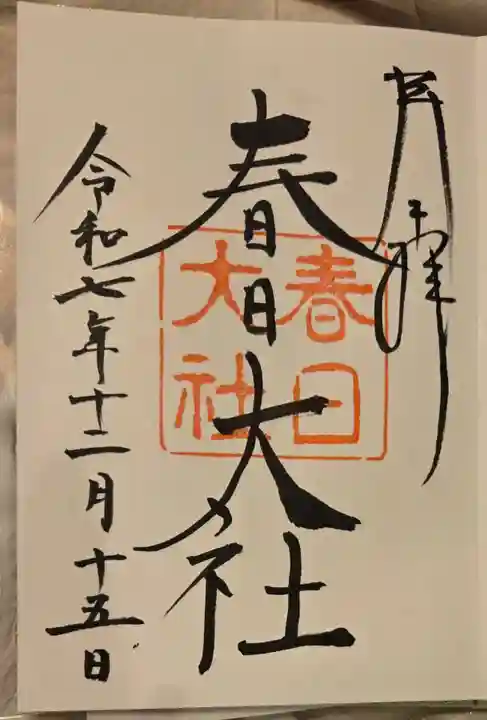 奉拝
春日大社
春日
大社
令和七年十二月十五日